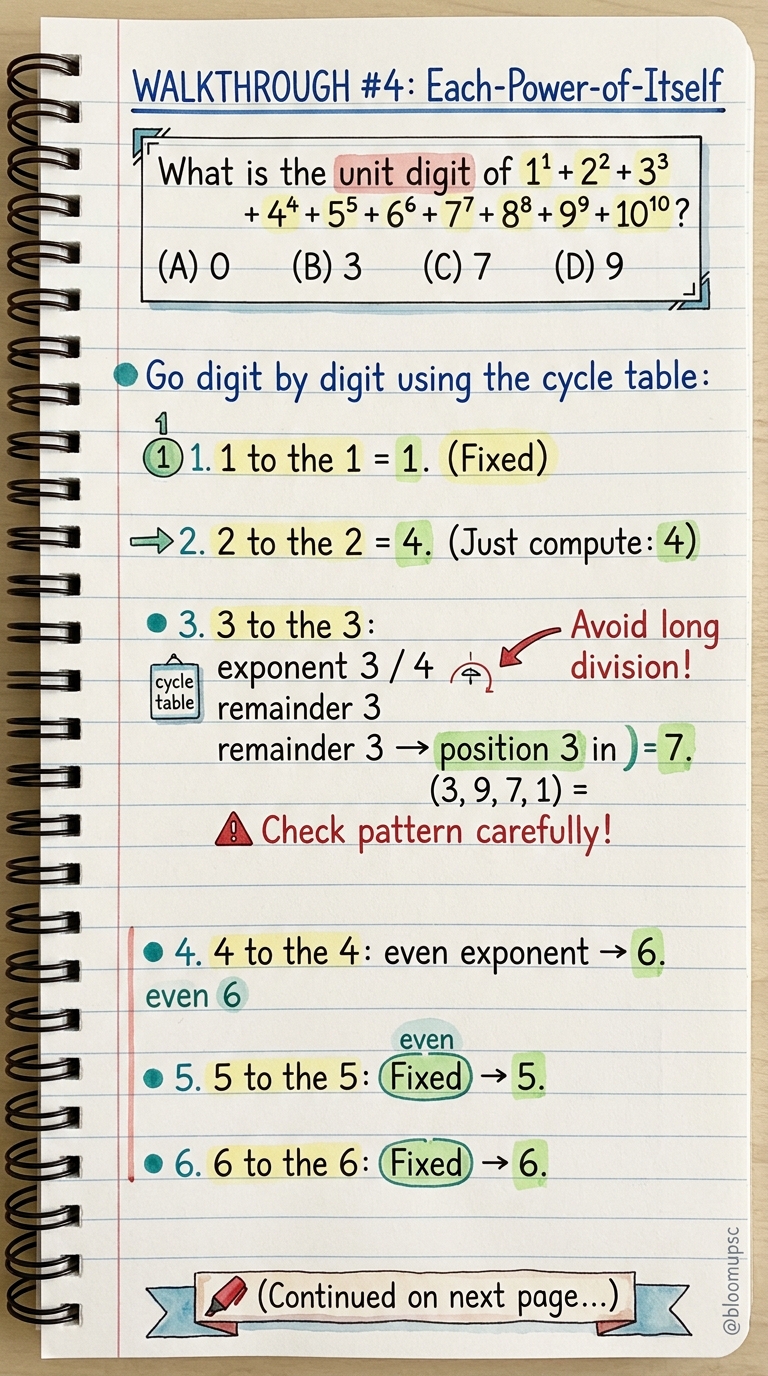 WALKTHROUGH #4: Each-Power-of-Itself
What is the unit digit of 1¹ + 2² + 3³
+ 4⁴ + 5⁵ + 6⁶ + 7⁷ + 8⁸ + 9⁹ + 10¹⁰?
(A) 0 (B) 3 (C) 7 (D) 9
Go digit by digit using the cycle table:
1
1 1. 1 to the 1 = 1. (Fixed)
→ 2. 2 to the 2 = 4. (Just compute: 4)
• 3. 3 to the 3:
Avoid long
division!
exponent 3 / 4
cycle
table
remainder 3
remainder 3 → position 3 in ) = 7.
(3, 9, 7, 1) =
Check pattern carefully!
• 4. 4 to the 4: even exponent → 6.
even 6
even
• 5. 5 to the 5: Fixed → 5.
• 6. 6 to the 6: Fixed → 6.
(Continued on next page...)
@bloomupsc